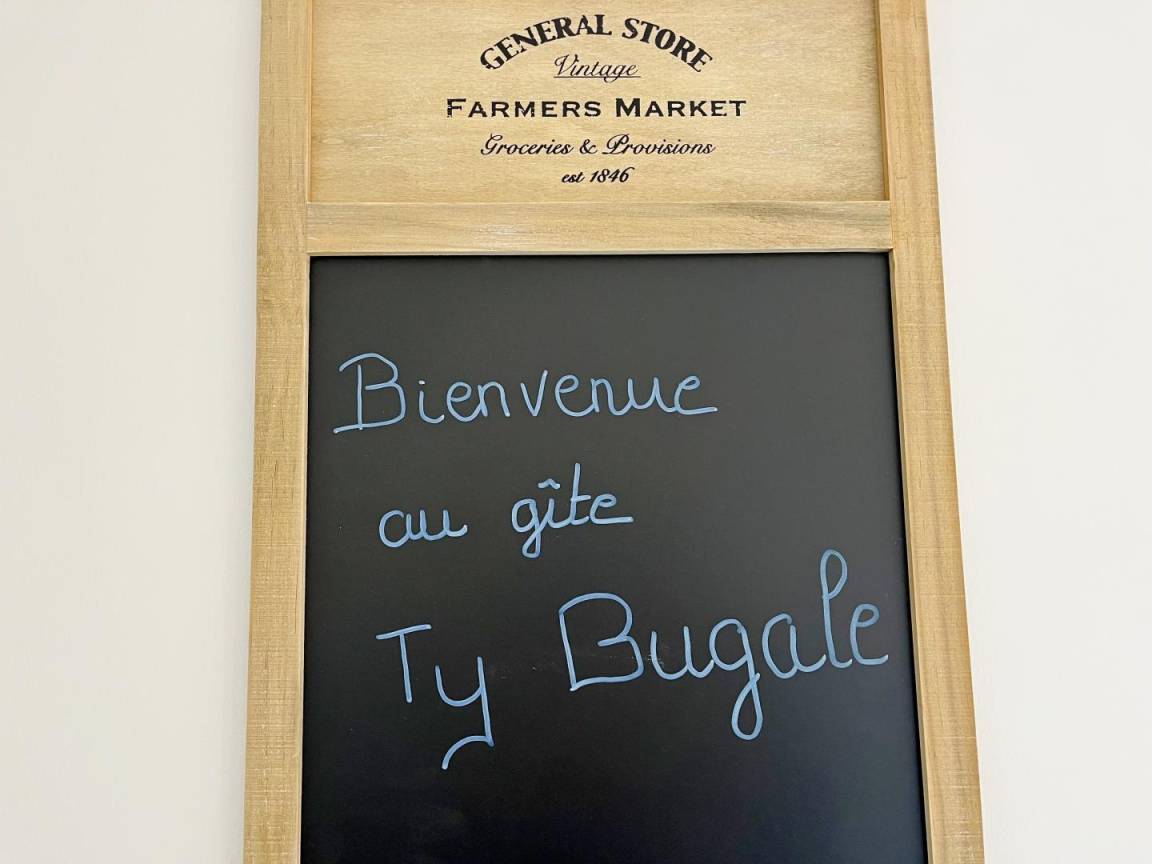 GENERAL STORE
Vintage
FARMERS MARKET
Groceries & Provisions
est 1846
Bienvenue
au gîte
Ty Bugale